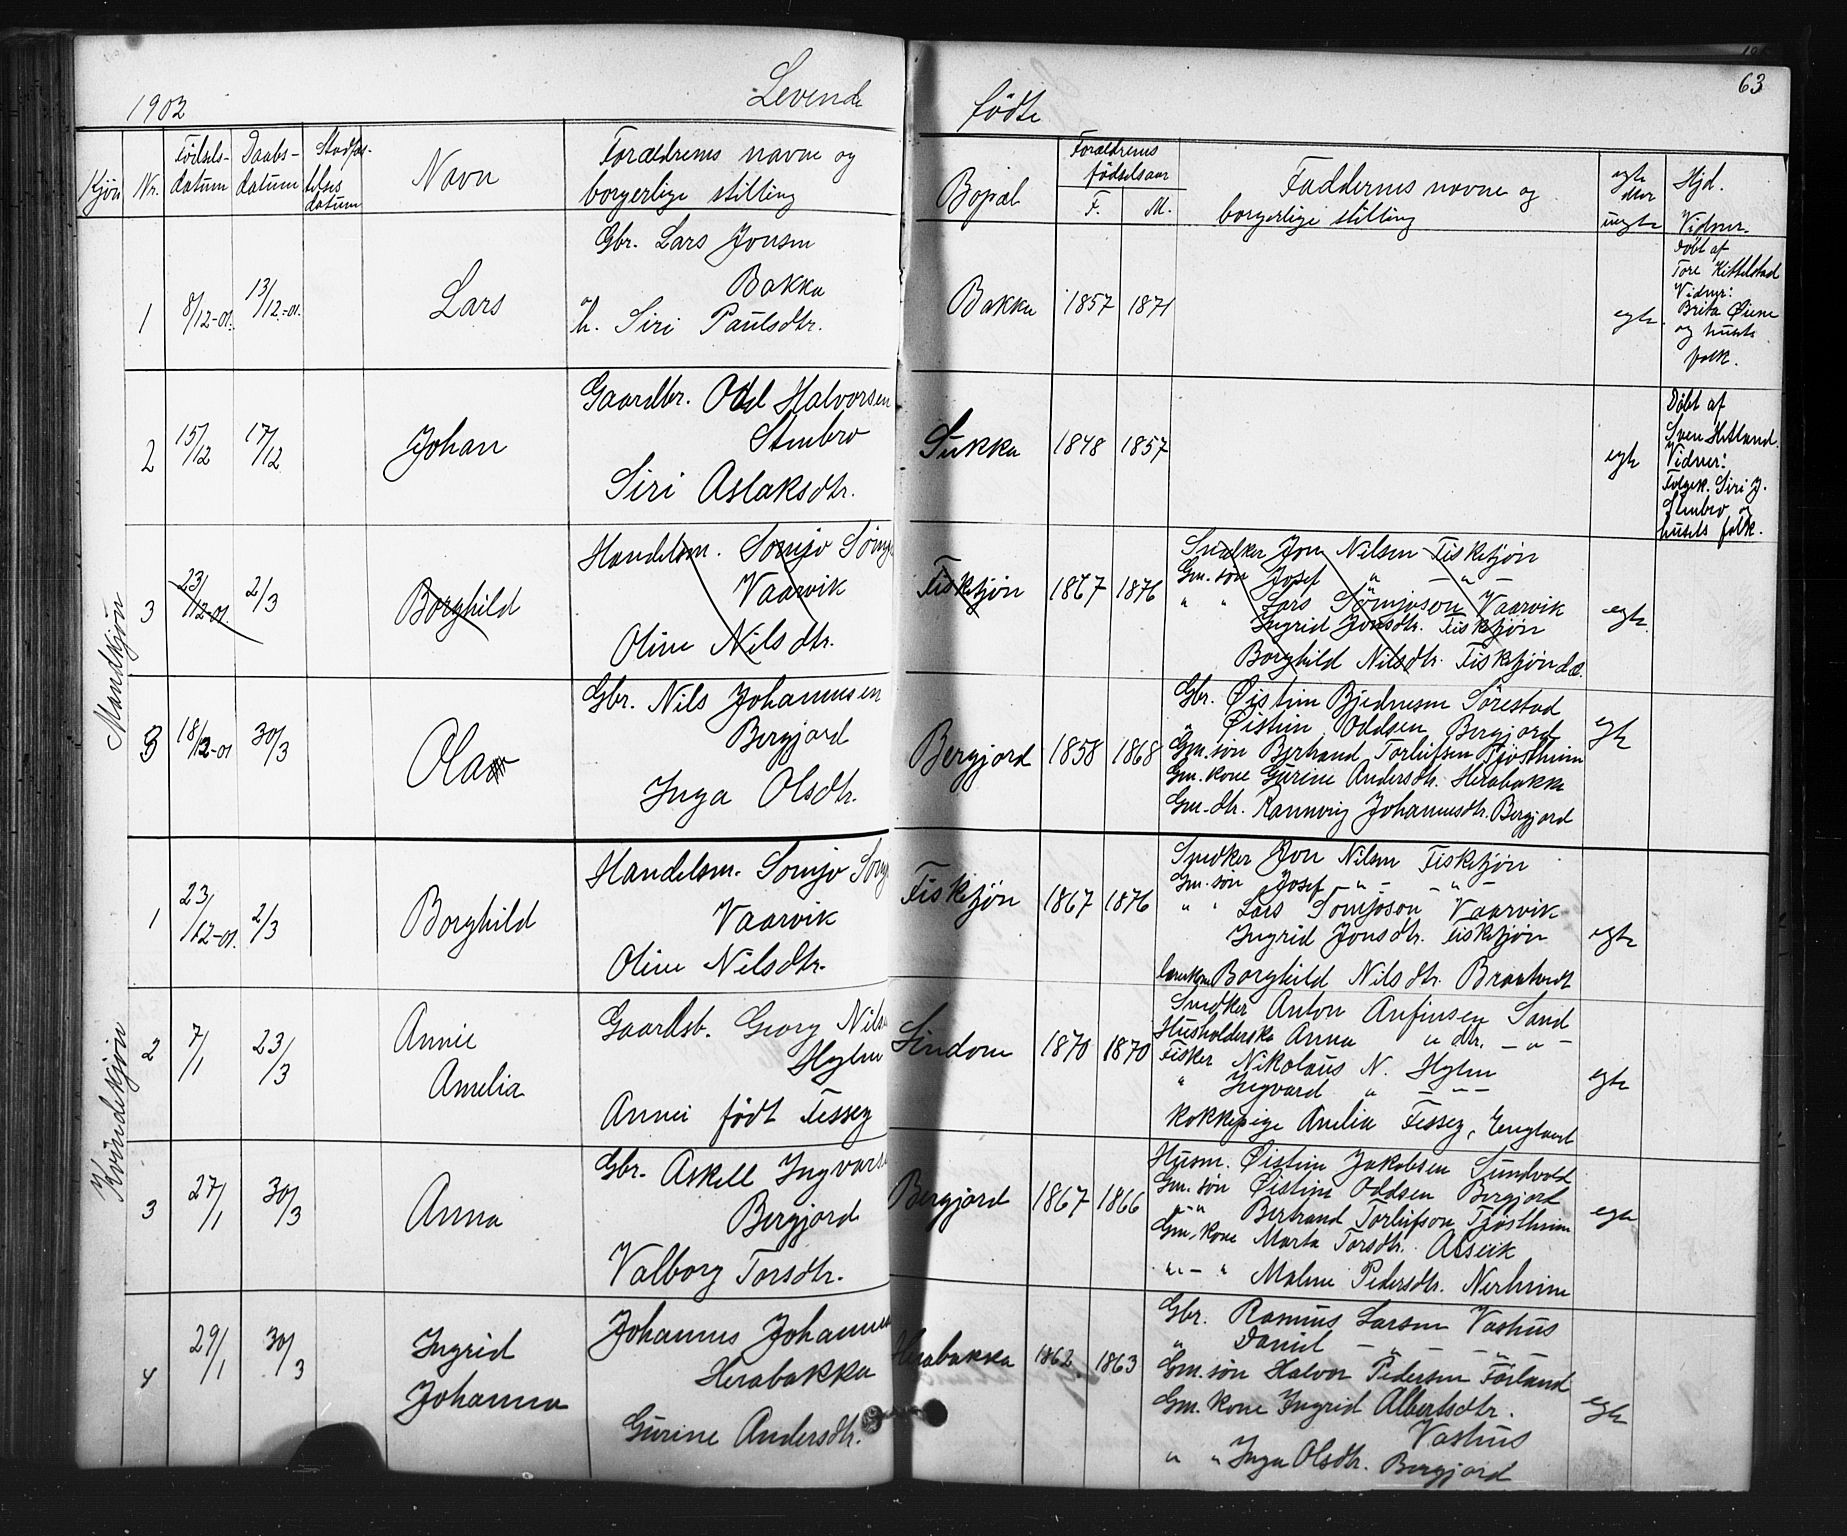 1902
Levende
fødte
63
Kjøn
Nr.
Fødsels-
datum
Daabs-
datum
Stadfæs-
telses
datum
Navn
Forældrenes navne og
borgerlige stilling
Bopæl
Forældrenes
fødselsaar
F.
M.
Faddernes navne og
borgerlige stilling
egte
eller
uegte
Hjd.
Vidner.
Mandkjøn
1
8/12-01.
13/12-01.
Lars
Gbr. Lars Jonsen
Bakka
h. Siri Paulsdtr.
Bakka
1857
1871
egte
Døbt af
Tore Kittelstad
Vidner:
Brita Øiene
og husets
folk.
2
15/12
17/12
Johan
Gaardbr. Odd Halvorsen
Stenbro
Siri Aslaksdtr.
Sukka
1848
1857
egte
Døbt af
Sven Hetland.
Vidner:
Folgek. Siri J.
Stenbro og
husets folk.
3
23/12-01.
2/3
Borghild
Handelsm. Somjo Sømj
Vaarvik
Oline Nilsdtr.
Fisketjøn
1867
1876
Snedker Jon Nilsen Fisketjøn
Gm. søn Josef " — " —
" " Lars Sømjoson Vaarvik
Ingrid Jonsdtr. Fisketjøn
Borghild Nilsdtr. Fisketjøn ds.
egte.
3
18/12-01
30/3
Ola
Gbr. Nils Johannesen
Bergjord
Inga Olsdtr.
Bergjord
1858
1868
Gbr. Øistein Bjednesen Sørestad
" Øistein Oddsen Bergjord
Gm. søn Bertrand Torleifsen Tjøstheim
Gm. kone Gurine Andersdtr. Herabakka
Gm. dtr. Rannveig Johannesdtr. Bergjord
egte
Kvindekjøn
1
23/12-01.
2/3
Borghild
Handelsm. Somjo Somj
Vaarvik
Oline Nilsdtr.
Fisketjøn
1867
1876
Snedker Jon Nilsen Fisketjøn
Gm. søn Josef — " — — " —
" " Lars Somjoson Vaarvik
Ingrid Jonsdtr. Fisketjøn
Borghild Nilsdtr. Braatveit
egte
2
7/1
23/3
Annie
Amelia
Gaardsb. Georg Nilse
Hylen
Annie født Fessey
Sindom
1870
1870
Snedker Anton Anfinsen Sand
Husholderske Anna " dtr. — " —
Fisker Nikolaus N. Hylen
" Ingvard " — — —
Kokkepige Amelia Fessey, England
egte
3
27/1
30/3
Anna
Gbr. Askell Ingvarse
Bergjord
Valborg Torsdtr.
Bergjord
1867
1866
Husm. Øistein Jakobsen Sundvold
Gm. søn Øistein Oddsen Bergjord
" — " Bertrand Torleifson Tjøstheim
Gm. kone Marta Torsdtr. Alsvik
" — " Malene Pedersdtr. Nerheim
egte
4
29/1
30/3
Ingrid
Johanna
Johannes Johannes
Herabakka
Gurine Andersdtr.
Herabakka
1862
1863
Gbr. Rasmus Larsen Vashus
" Daniel — " — — " —
Gm. søn Halvor Pedersen Førland
Gm. kone Ingrid Albertsdtr.
Vashus
" " Inga Olsdtr. Bergjord
egte